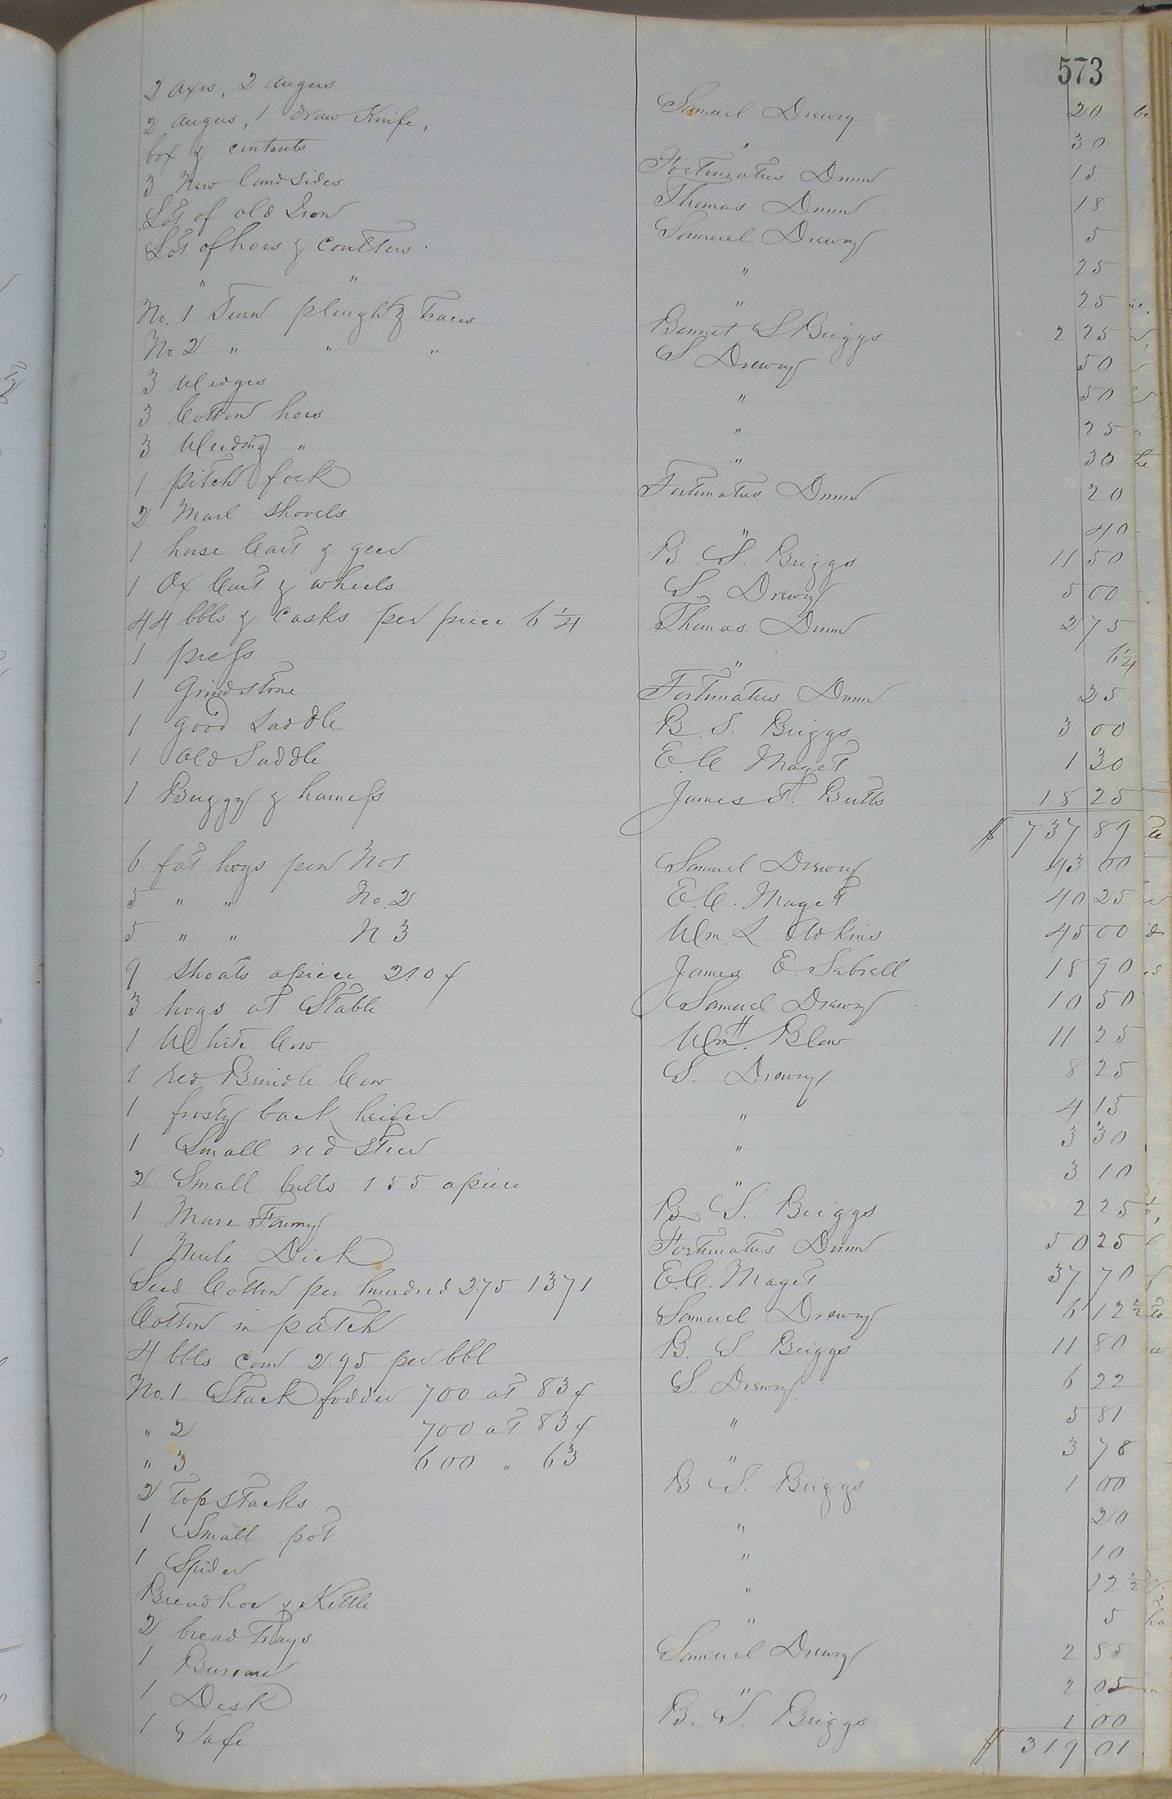 573
2 axes, 2 augers Samuel Drewry 20
2 augers, 1 draw Knife, " 30
box & contents Fortunatus Drew 15
3 New landsides Thomas Drew 18
Lot of old Iron Samuel Drewry 5
Lot of hoes & coulters " 25
" " " 25
No. 1 Turn plough & Traces Bennet S Briggs 2 25
No 2 " " " S Drewry 50
3 Wedges " 50
3 Cotton hoes " 25
3 Weeding " " 30
1 pitch fork Fortunatus Drew 20
2 Marl Shovels " 40
1 horse Cart & geer B. S. Briggs 11 50
1 Ox Cart & wheels S. Drewry 5 00
44 bbls & casks per piece 6 1/4 Thomas Drew 2 75
1 press " 6 1/4
1 Grindstone Fortunatus Drew 25
1 good Saddle B. S. Briggs 3 00
1 Old Saddle E. C. Maget 1 30
1 Buggy & harness James T. Butts 18 25
$ 737 89
6 fat hogs pen No. 1 Samuel Drewry 43 00
5 " " No. 2 E. C. Maget 40 25
5 " " N 3 Wm. L. Adkins 45 00
9 Shoats apiece 210¢ James E. Sabrell 18 90
3 hogs at Stable Samuel Drewry 10 50
1 White Cow Wm H. Blow 11 25
1 red Brindle Cow S. Drewry 8 25
1 frosty back heifer " 4 15
1 Small red Steer " 3 30
2 Small bulls 155 apiece " 3 10
1 Mare Fanny B. S. Briggs 2 25
1 Mule Dick Fortunatus Drew 50 25
Seed Cotton per hundred 275 1371 E. C. Maget 37 70
Cotton in patch Samuel Drewry 6 12 1/2
4 bbls corn 2.95 per bbl B. S. Briggs 11 80
No. 1. Stack fodder 700 at 83¢ S. Drewry 6 22
" 2 700 at 83¢ " 5 81
" 3 600 " 63 " 3 78
2 top Stacks B S. Briggs 1 00
1 Small pot " 20
1 Spider " 10
Bread hoe & Kettle " 12 1/2
2 bread Trays " 5
1 Bureau Samuel Drewry 2 85
1 Desk " 2 05
1 Safe B. S. Briggs 1 00
$ 319 01